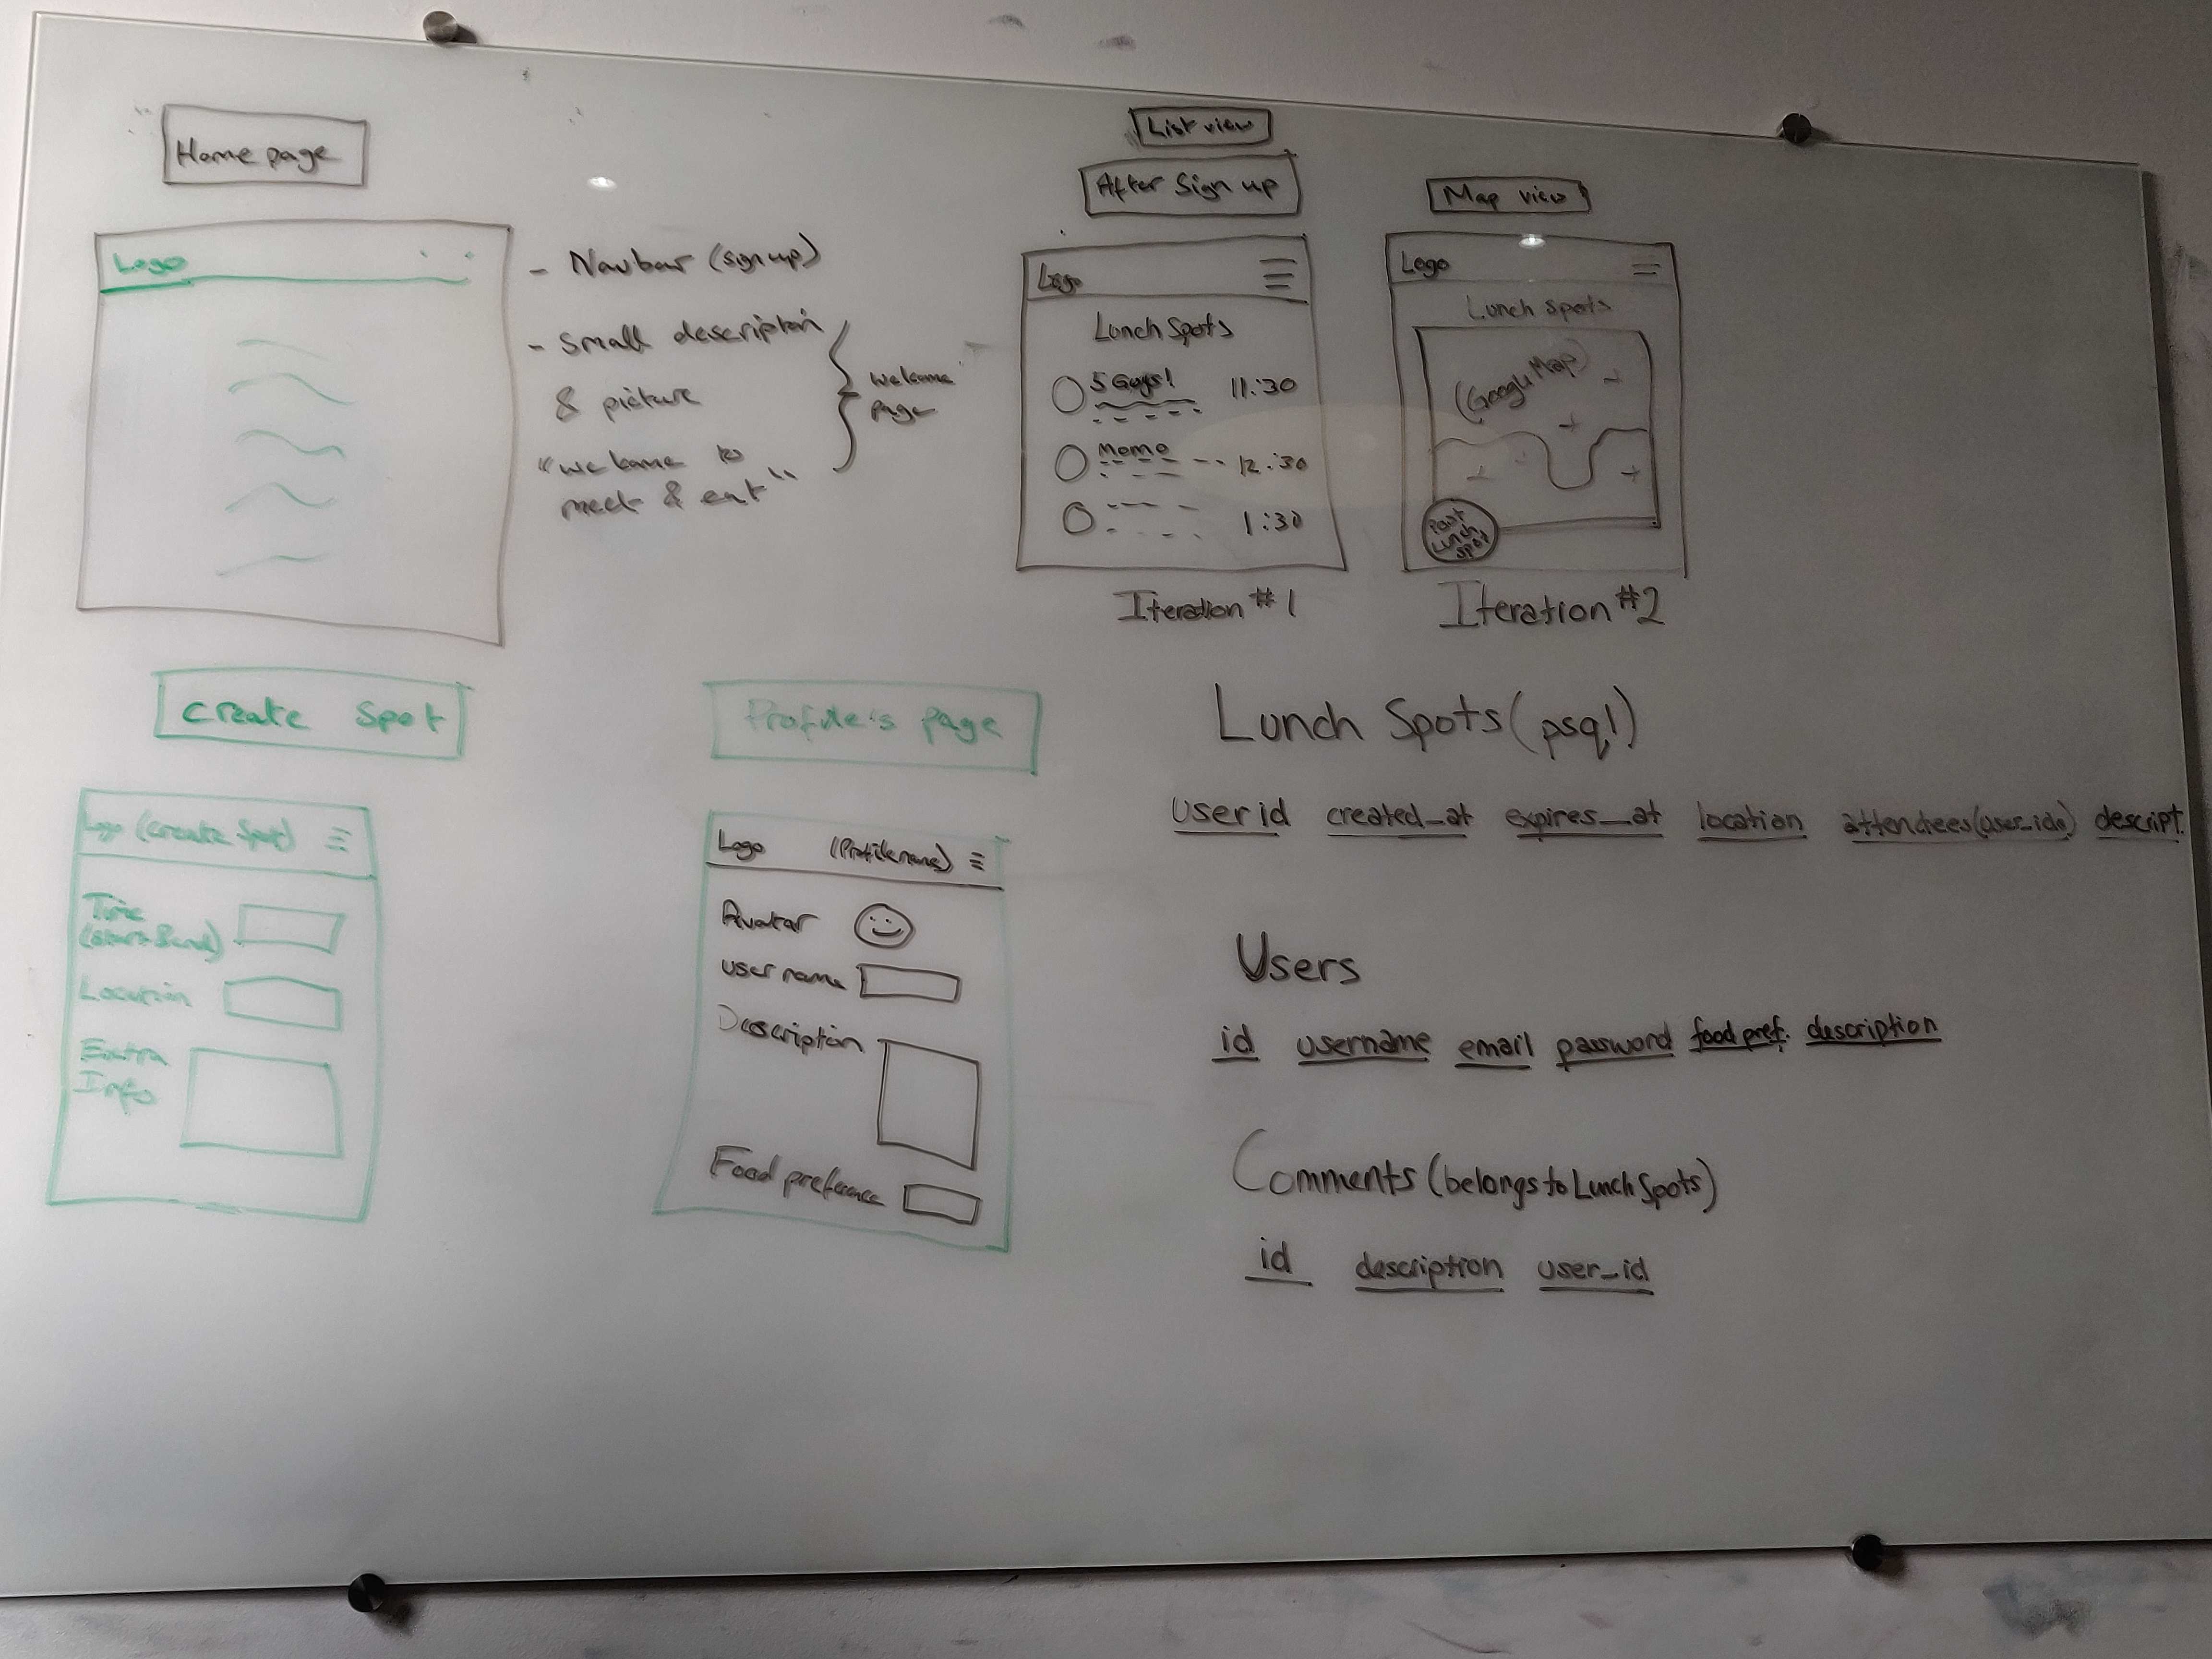 Home page
Logo
- Navbar (sign up)
- small description
& picture
"welcome to
meet & eat"
welcome
page
List view
After Sign up
Logo
Lunch Spots
5 Guys! 11:30
Momo 12:30
1:30
Iteration #1
Map view
Logo
Lunch spots
(Google Map)
Post
Lunch
spot
Iteration #2
Create Spot
Logo (create Spot)
Time
(start & end)
Location
Extra
Info
Profile's page
Logo (Profile name)
Avatar
user name
Description
Food preference
Lunch Spots (psql)
user id created_at expires_at location attendees (user_ids) descript.
Users
id username email password food pref. description
Comments (belongs to Lunch Spots)
id description user_id